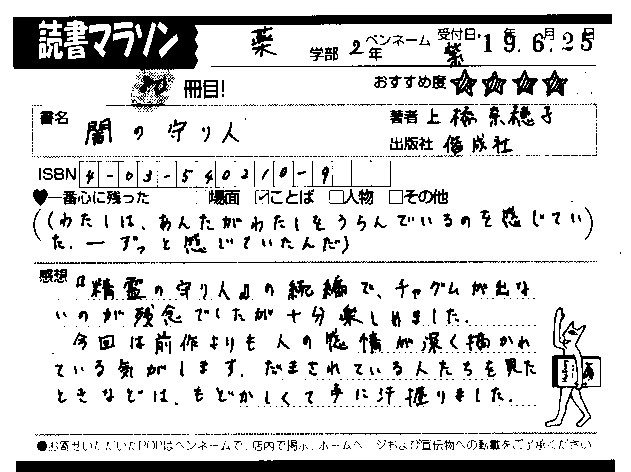 読書マラソン
薬 学部 2年 ペンネーム 紫 受付日. 19年6月25日
冊目! おすすめ度 ☆☆☆☆
書名 闇の守り人
著者 上橋菜穂子
出版社 偕成社
ISBN 4-03-540210-9
♥一番心に残った 場面 ☑ことば □人物 □その他
((わたしは、あんたがわたしをうらんでいるのを感じてい
た.ーずっと感じていたんだ)
感想 『精霊の守り人』の続編で、チャグムが出な
いのが残念でしたが十分楽しめました.
今回は前作よりも人の感情が深く描かれ
ている気がします. だまされている人たちを見た
ときなどは、もどかしくて手に汗握りました.
●お寄せいただいたPOPはペンネームで、店内で掲示、ホームページおよび宣伝物への転載をご了承ください